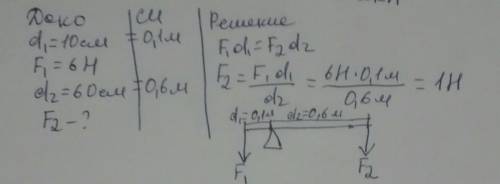 Дано
СИ
Решение
d₁=10см =0,1м
F₁=6Н
d₂=60см=0,6м
F₂-?
F₁d₁=F₂d₂
F₂= F₁d₁/d₂ = 6Н·0,1м/0,6м = 1Н
d₁=0,1м d₂=0,6м
F₁
F₂